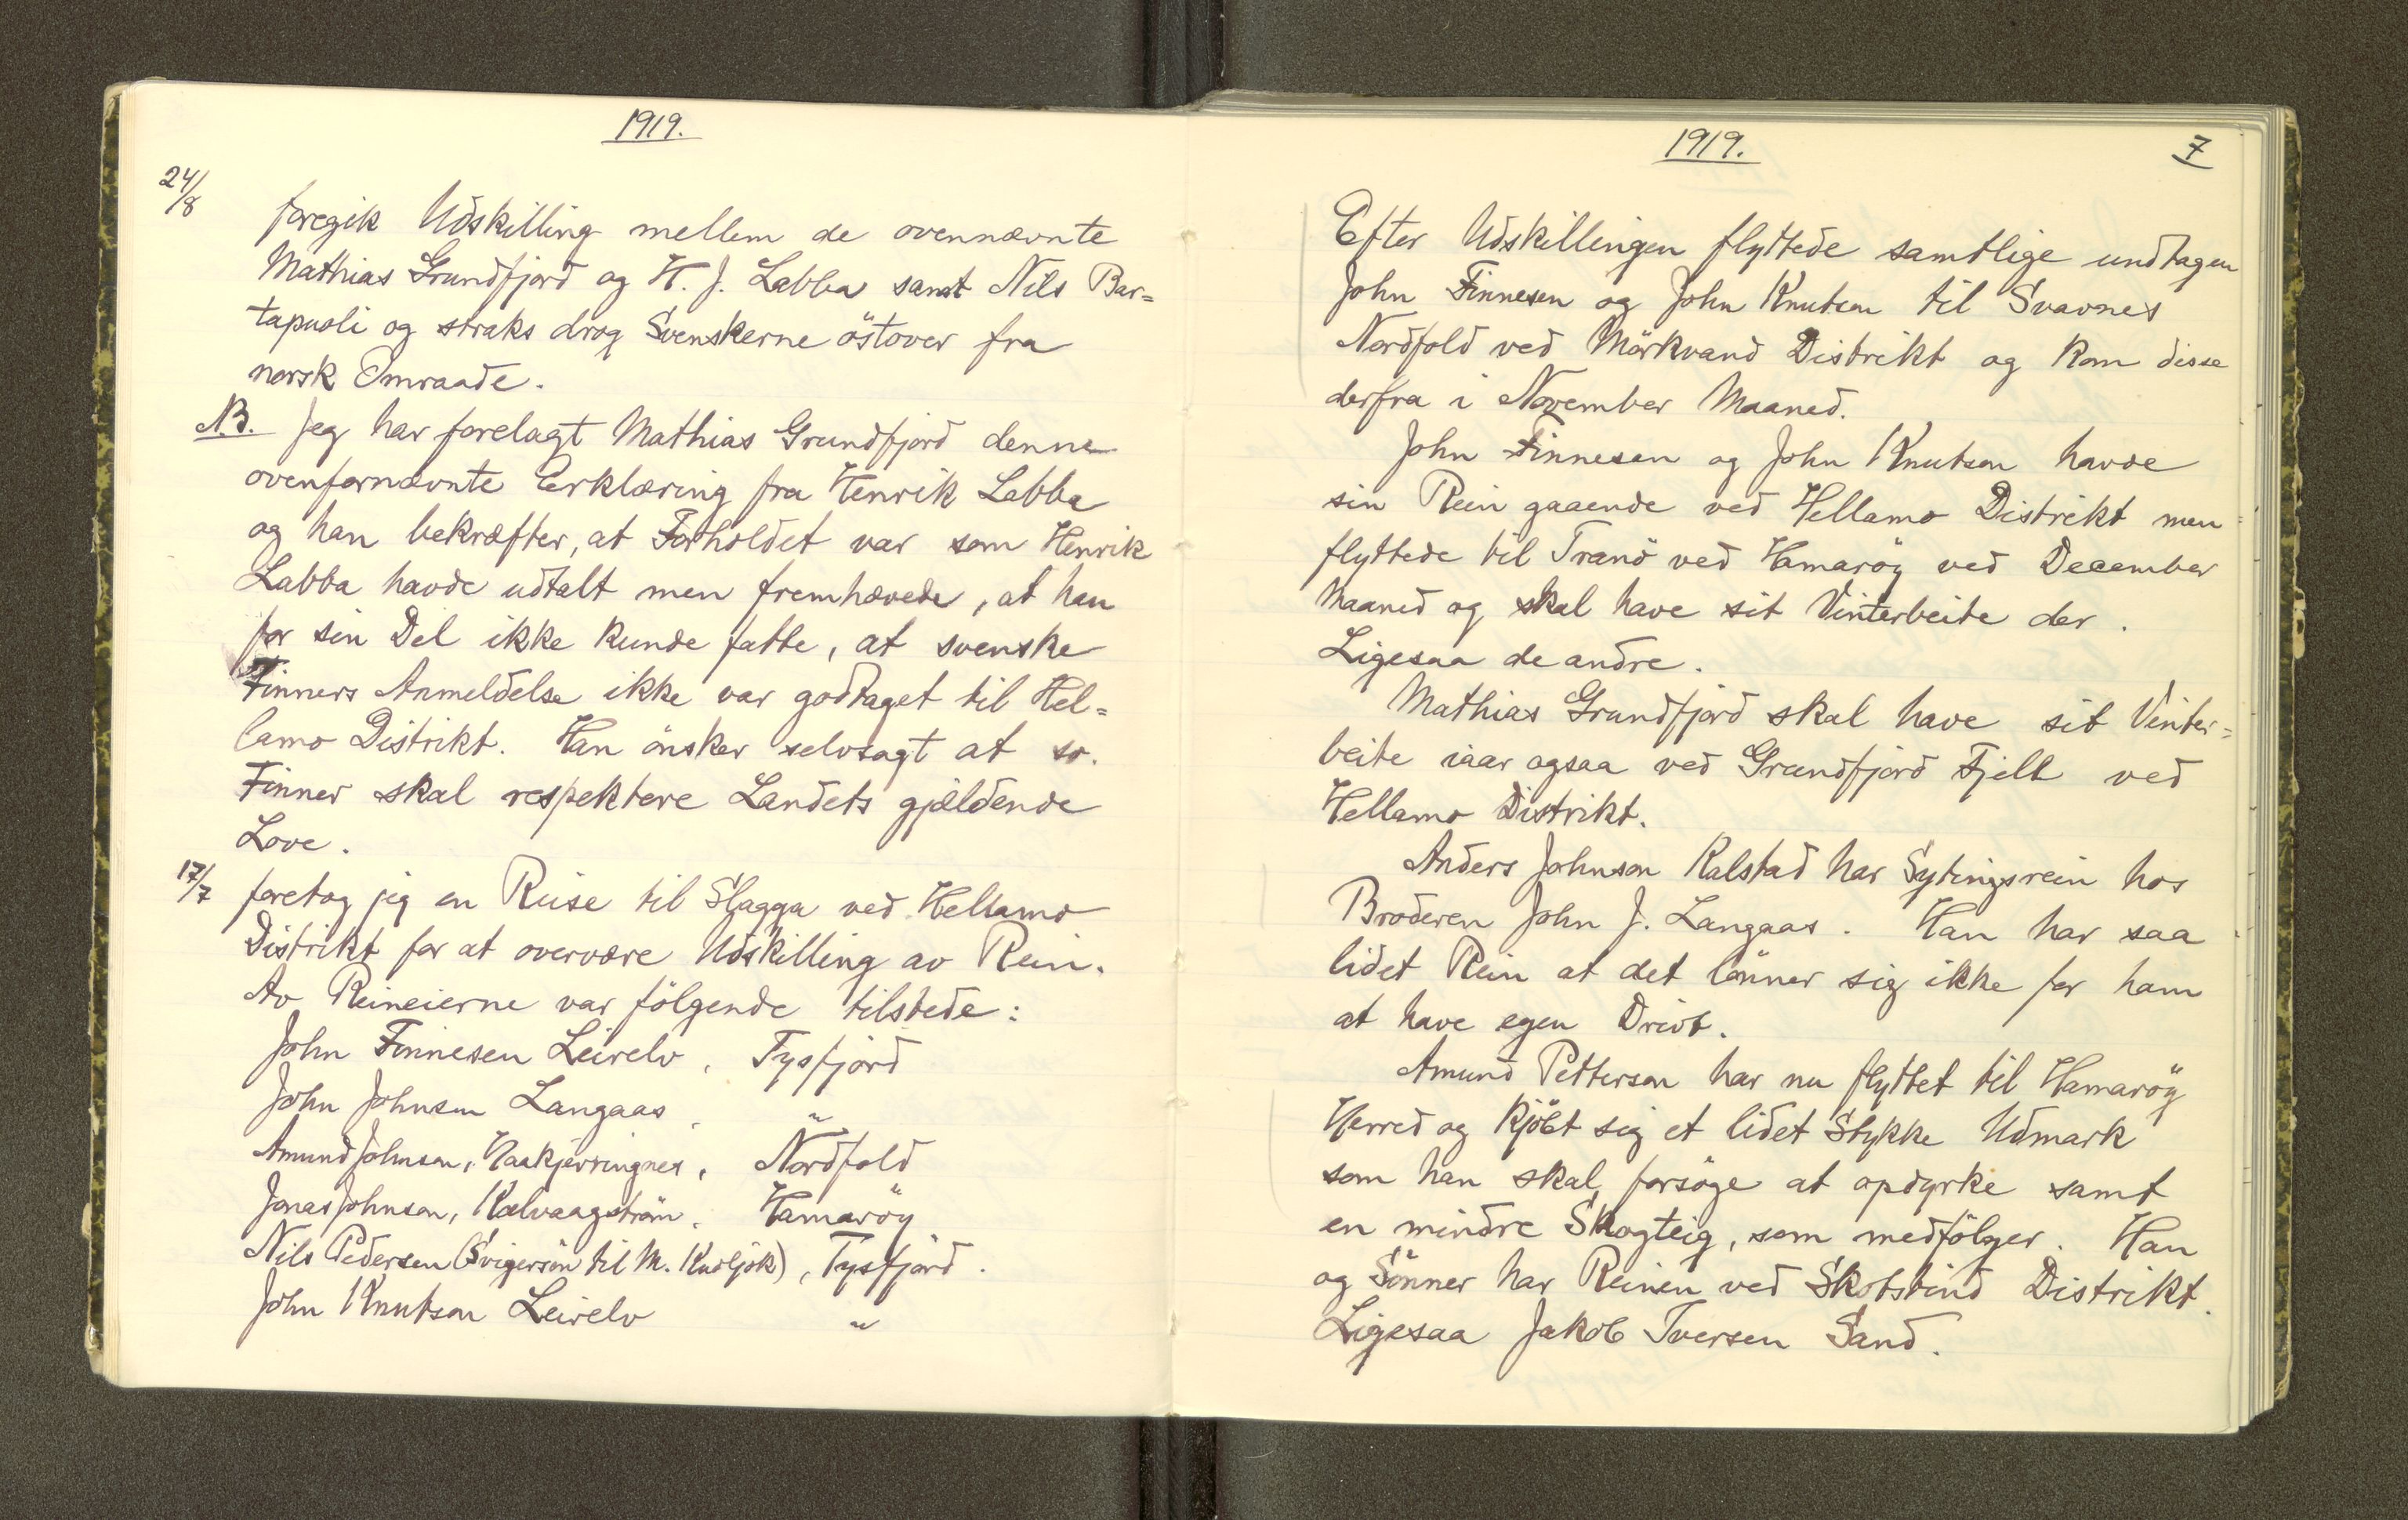 1919.
24/8 foregik Udskilling mellem de ovennævnte
Mathias Grundfjord og H. J. Labba samt Nils Bar=
tapuoli og straks drog Svenskerne östover fra
norsk Omraade.
N.B. Jeg har forelagt Mathias Grundfjord denne
ovenfornævnte Erklæring fra Henrik Labba
og han bekræfter, at Forholdet var som Henrik
Labba havde udtalt men fremhævede, at han
for sin Del ikke kunde fatte, at svenske
Finners Anmeldelse ikke var godtaget til Hel=
lamo Distrikt. Han önsker selvsagt at sv.
Finner skal respektere Landets gjældende
Love.
17/7 foretog jeg en Reise til Slagga ved Hellamo
Distrikt for at overvære Udskilling av Rein.
Av Reineierne var fölgende tilstede:
John Finnesen Leirelv, Tysfjord
John Johnsen Langaas, "
Amund Johnsen, Haakjerringnes, Nordfold
Jonas Johnsen, Kalvaagström, Hamaröy
Nils Pedersen (Svigersön til M. Kuoljok), Tysfjord.
John Knutsen Leirelv "
1919.
7
Efter Udskillingen flyttede samtlige undtagen
John Finnesen og John Knutsen til Svavnes
Nordfold ved Mörkvand Distrikt og kom disse
derfra i November Maaned.
John Finnesen og John Knutsen havde
sin Rein gaaende ved Hellamo Distrikt men
flyttede til Tranö ved Hamaröy ved December
Maaned og skal have sit Vinterbeite der.
Ligesaa de andre.
Mathias Grundfjord skal have sit Vinter=
beite iaar ogsaa ved Grundfjord Fjell ved
Hellamo Distrikt.
Anders Johnson Kalstad har Sytingsrein hos
Broderen John J. Langaas. Han har saa
lidet Rein at det lönner sig ikke for ham
at have egen Drivt.
Amund Petterson har nu flyttet til Hamaröy
Herred og kjöbt sig et lidet Stykke Udmark
som han skal forsöge at opdyrke samt
en mindre Skogteig, som medfölger. Han
og Sönner har Reinen ved Skotstind Distrikt.
Ligesaa Jakob Iversen Sand.